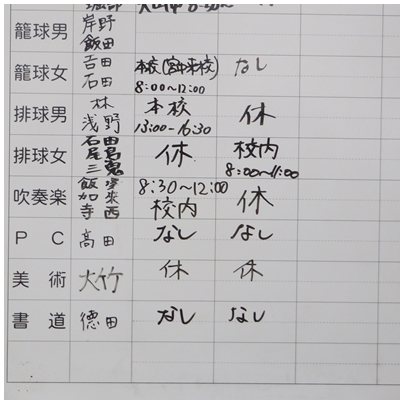 籠球男 岸野
飯田
籠球女 吉田 本校(宮中来校) なし
石田 8:00~12:00
排球男 林 本校 休
浅野 13:00-16:30
排球女 石田 休 校内
8:00~11:00
吹奏楽 飯 8:30~12:00 休
加 校内
寺西
PC 高田 なし なし
美術 大竹 休 休
書道 德田 なし なし